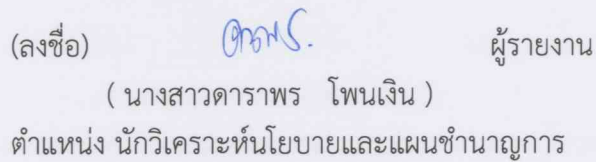 (ลงชื่อ) ผู้รายงาน
( นางสาวดาราพร โพนเงิน )
ตำแหน่ง นักวิเคราะห์นโยบายและแผนชำนาญการ